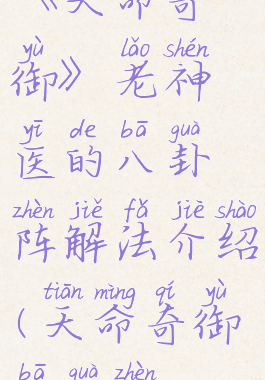 《天命奇
yù lǎo shén
御》 老神
yī de bā guà
医的八卦
zhèn jiě fǎ jiè shào
阵解法介绍
tiān mìng qí yù
(天命奇御
bā guà zhèn